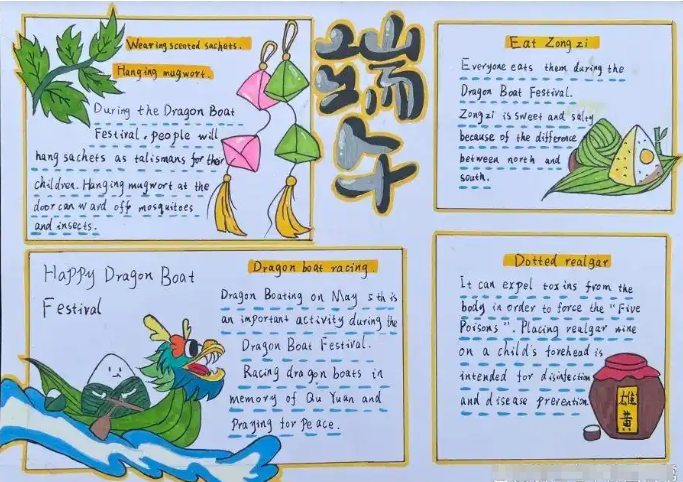 Wearing scented sachets.
Hanging mugwort.
During the Dragon Boat
Festival, people will
hang sachets as talismans for their
children. Hanging mugwort at the
door can ward off mosquitoes
and insects.
端
午
Eat Zongzi
Everyone eats them during the
Dragon Boat Festival.
Zongzi is sweet and salty
because of the difference
between north and
south.
Happy Dragon Boat
Festival
Dragon boat racing.
Dragon Boating on May 5th is
an important activity during the
Dragon Boat Festival.
Racing dragon boats in
memory of Qu Yuan and
Praying for peace.
Dotted realgar
It can expel toxins from the
body in order to force the "Five
Poisons". Placing realgar wine
on a child's forehead is
intended for disinfection
and disease prevention
雄
黄